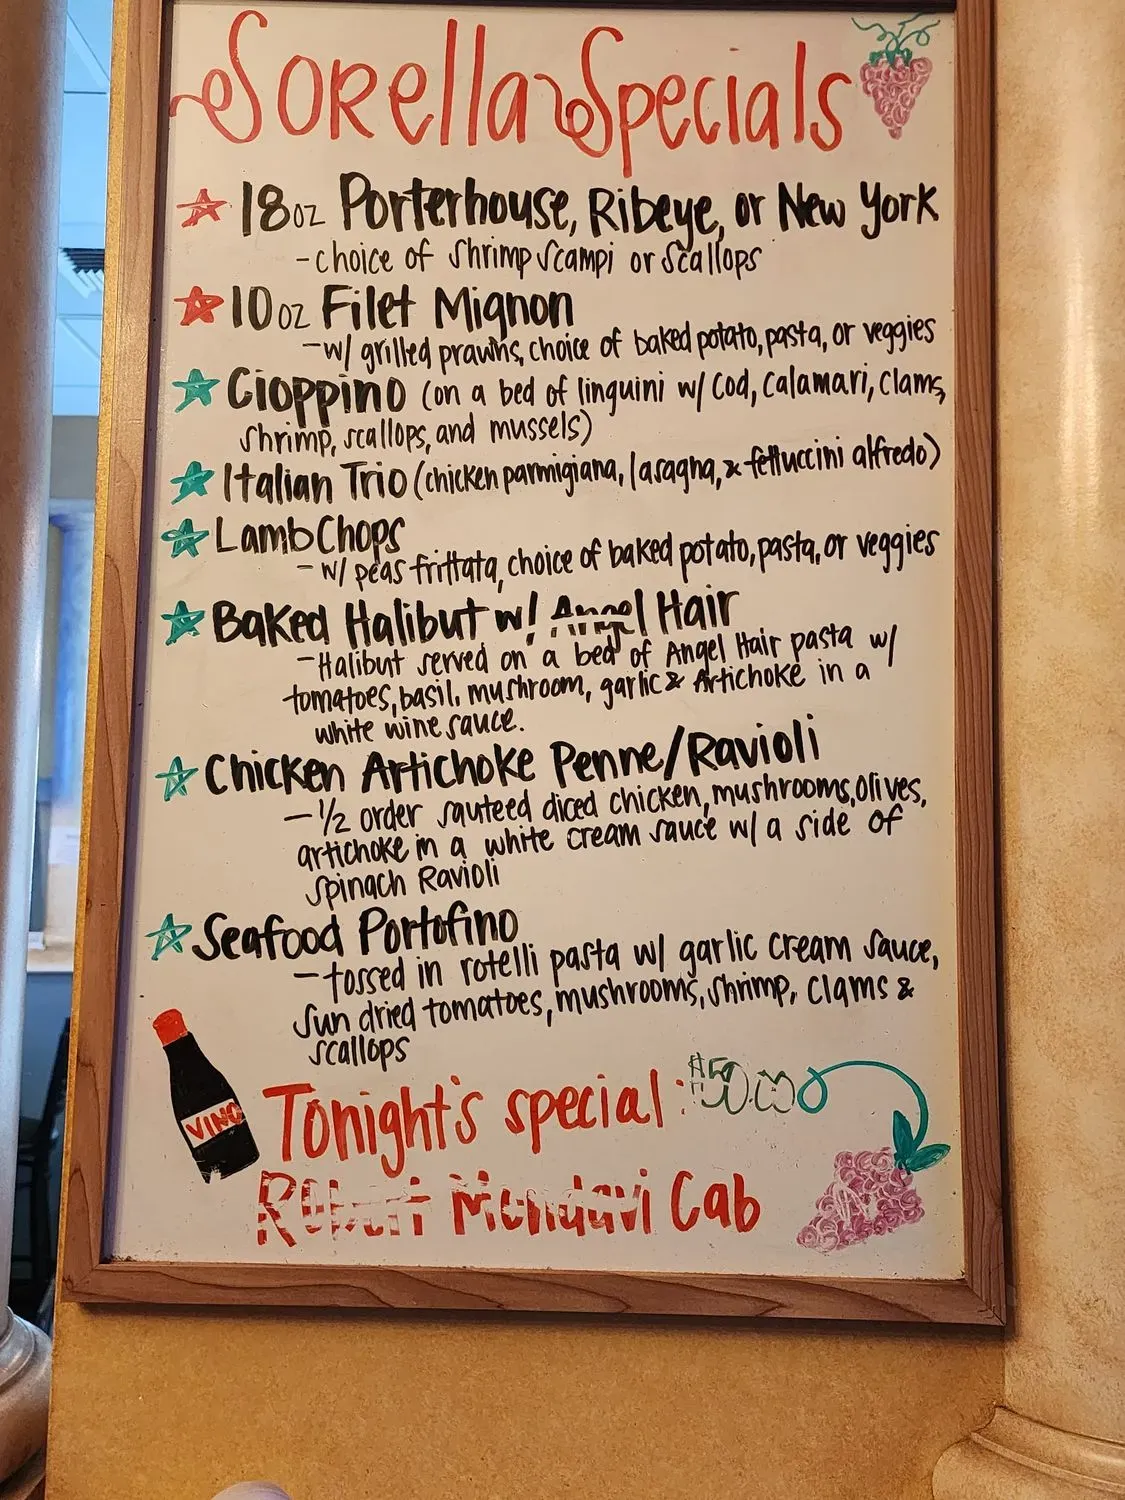 Sorella Specials
18oz Porterhouse, Ribeye, or New York
- choice of shrimp scampi or scallops
10oz Filet Mignon
- w/ grilled prawns, choice of baked potato, pasta, or veggies
Cioppino (on a bed of linguini w/ Cod, Calamari, Clams,
shrimp, scallops, and mussels)
Italian Trio (chicken parmigiana, lasagna, & fettuccini alfredo)
Lamb Chops
- w/ peas frittata, choice of baked potato, pasta, or veggies
Baked Halibut w/ Angel Hair
- Halibut served on a bed of Angel Hair pasta w/
tomatoes, basil, mushroom, garlic & Artichoke in a
white wine sauce.
Chicken Artichoke Penne/Ravioli
- 1/2 order sauteed diced chicken, mushrooms, olives,
artichoke in a white cream sauce w/ a side of
spinach Ravioli
Seafood Portofino
- tossed in rotelli pasta w/ garlic cream sauce,
sun dried tomatoes, mushrooms, shrimp, clams &
scallops
VINO
Tonight's special: $50.00
Robert Mondavi Cab